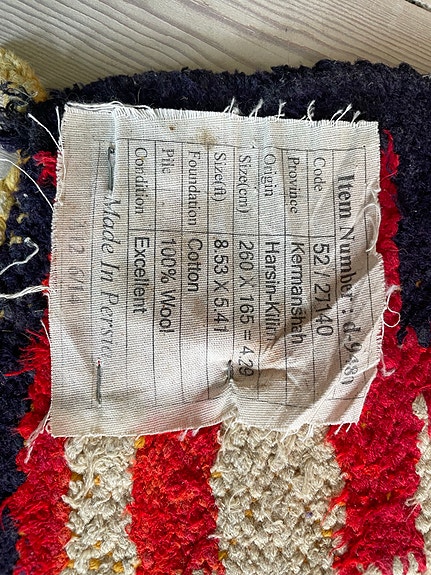 Item Number : d-9480
Code 52 / 27140
Province Kermanshah
Origin Harsin-Kilim
Size(cm) 260 X 165 = 4.29
Size(ft) 8.53 X 5.41
Foundation Cotton
Pile 100% Wool
Condition Excellent
Made In Persia